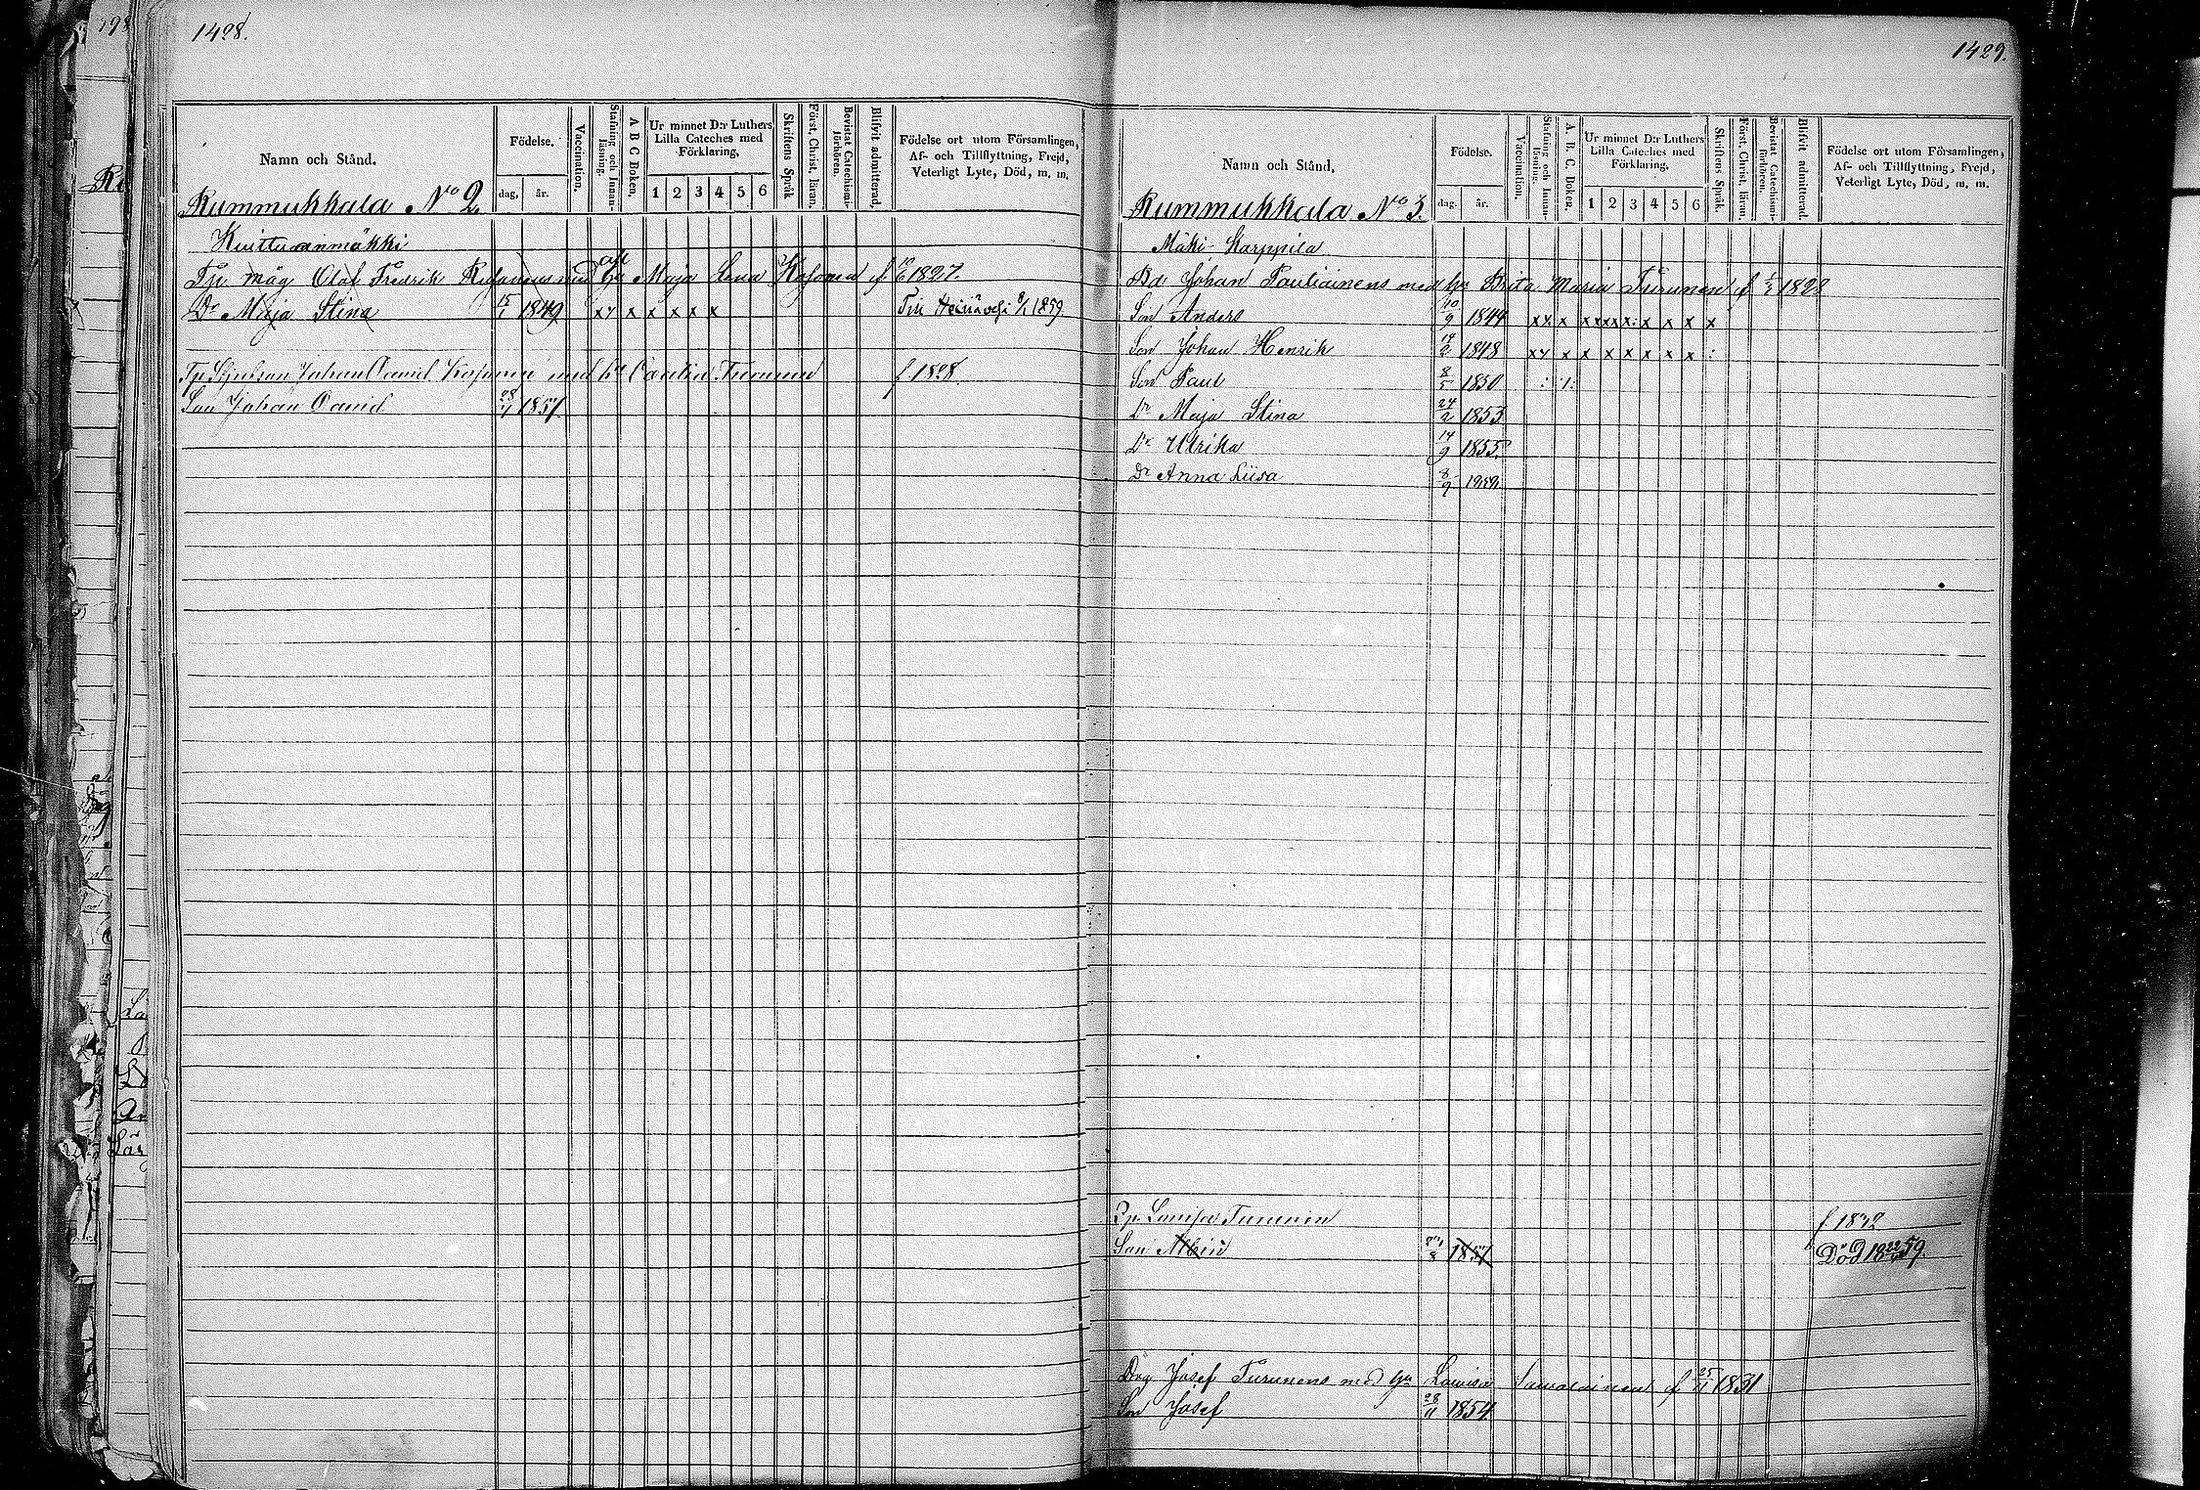 1428.
Namn och Stånd.
Födelse.
dag, år.
Vaccination.
Stafning och Innanläsning.
A B C Boken,
Ur minnet D:r Luthers Lilla Cateches med Förklaring,
1 2 3 4 5 6
Skriftens Språk
Först, Christ, läran,
Bevistat Catechismiförhören.
Blifvit admitterad,
Födelse ort utom Församlingen, Af- och Tillflyttning, Frejd, Veterligt Lyte, Död, m. m.
Rummukkala No 2.
Tp. måg Olof Fredrik med afl hu Maja Lena f 1827.
Dr Maja Stina 15/1 1849 x x x x x x Till Heinävesi 1859
Johan David med hu Turunen f 1828.
Son Johan David 1857.
1429.
Namn och Stånd.
Födelse.
dag. år.
Vaccination,
Stafning och Innanläsning.
A. B. C. Boken.
Ur minnet D:r Luthers Lilla Cateches med Förklaring.
1 2 3 4 5 6
Skriftens Språk.
Först, Christ, läran,
Bevistat Catechismiförhören.
Blifvit admitterad,
Födelse ort utom Församlingen, Af- och Tillflyttning, Frejd, Veterligt Lyte, Död, m. m.
Rummukkala No 3.
Mäki- Karppila
Bd Johan Pautiainens med hu Brita Maria Turunen f 1828
Son Anders 10/9 1844
Son Johan Henrik 1848
Son Paul 8/5 1850
Dr Maja Stina 24/2 1853
Dr Ulrika 14/9 1855.
Dr Anna Liisa 8/9
Lovisa Turunen f 1832
Son Albin 1857 Död 18 22/ 59.
Drg Josef Turunens med hu Lovisa f 25/11 1831
Son Josef 28/11 1854